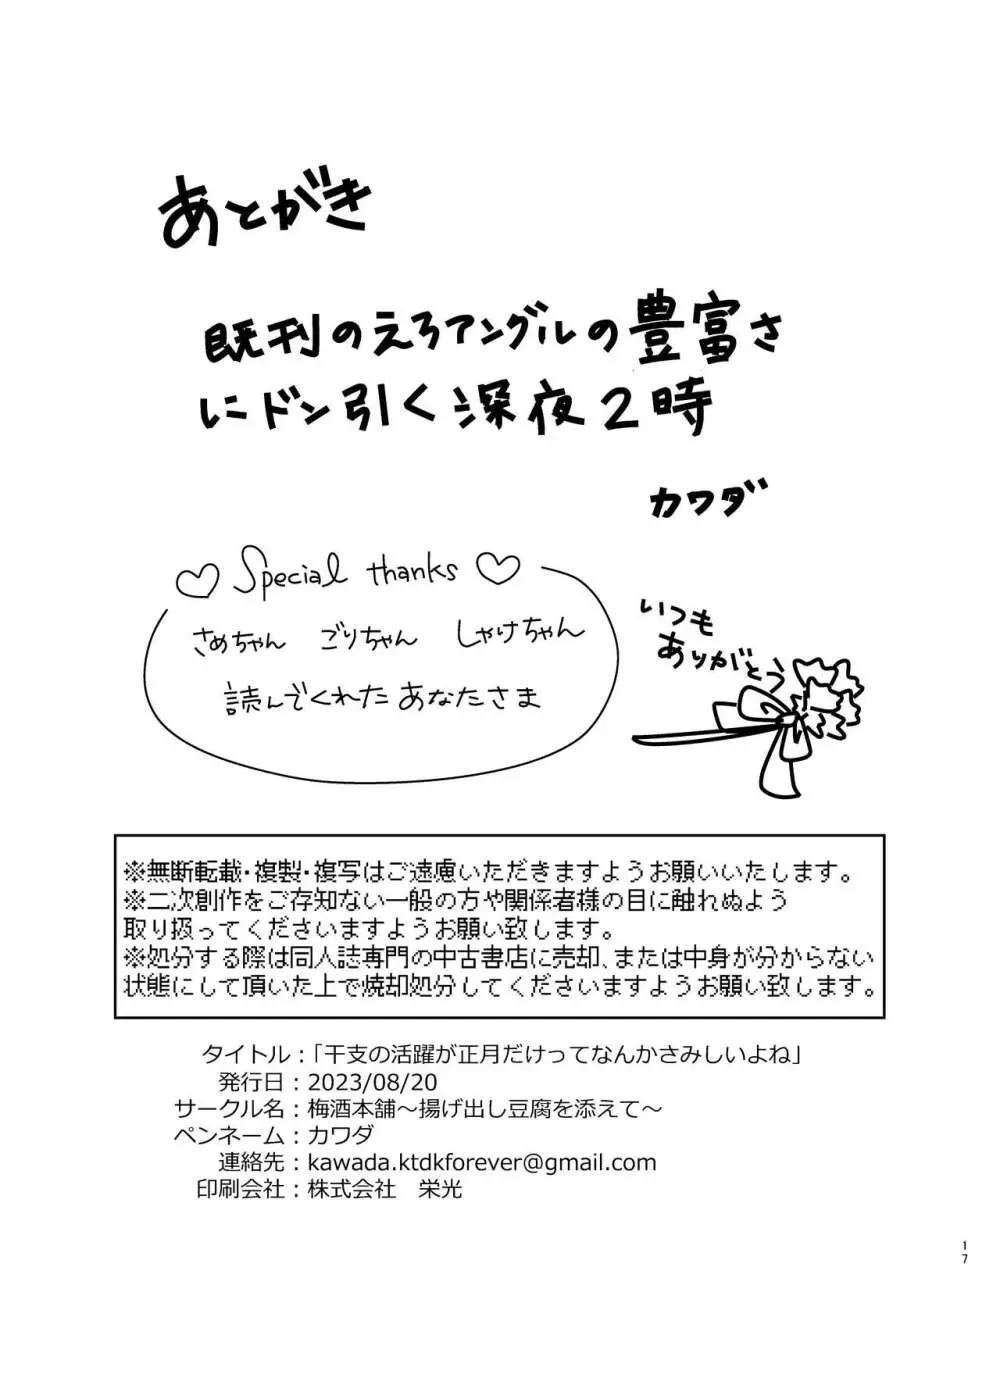 あとがき
既刊のえろアングルの豊富さ
にドン引く深夜2時
カワダ
♡ Special thanks ♡
さめちゃん ごりちゃん しゃけちゃん
読んでくれた あなたさま
いつも
ありがとう
※無断転載・複製・複写はご遠慮いただきますようお願いいたします。
※二次創作をご存知ない一般の方や関係者様の目に触れぬよう
取り扱ってくださいますようお願い致します。
※処分する際は同人誌専門の中古書店に売却、または中身が分からない
状態にして頂いた上で焼却処分してくださいますようお願い致します。
タイトル：「干支の活躍が正月だけってなんかさみしいよね」
発行日：2023/08/20
サークル名：梅酒本舗～揚げ出し豆腐を添えて～
ペンネーム：カワダ
連絡先：kawada.ktdkforever@gmail.com
印刷会社：株式会社　栄光
17